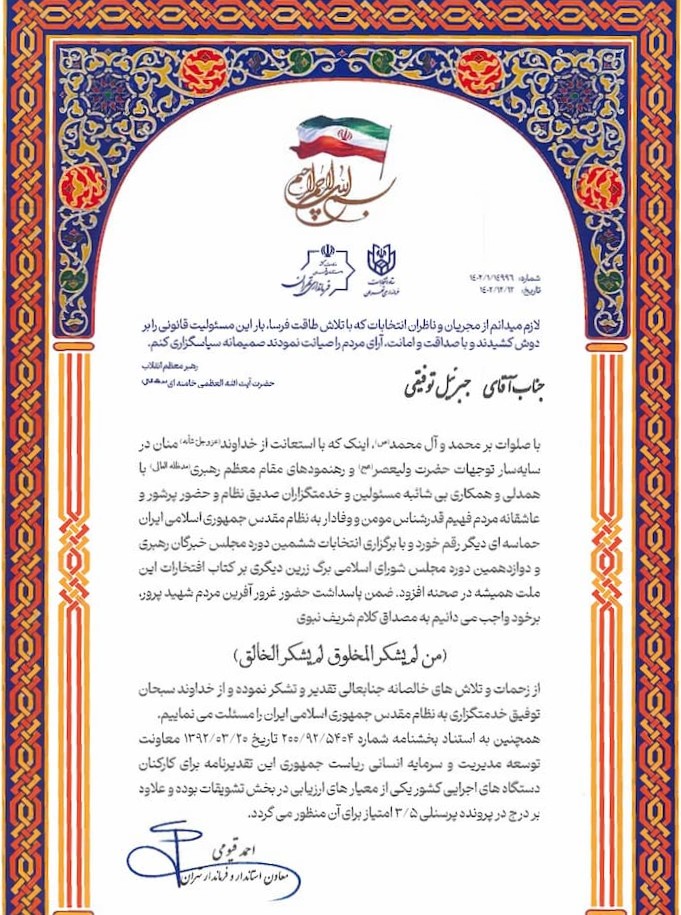 بسم الله الرحمن الرحیم
فرمانداری تهران
شماره: ۱۴۰۲/۱/۱۴۹۹۶
تاریخ: ۱۴۰۲/۱۲/۱۲
لازم میدانم از مجریان و ناظران انتخابات که با تلاش طاقت فرسا، بار این مسئولیت قانونی را بر
دوش کشیدند و با صداقت و امانت، آرای مردم را صیانت نمودند صمیمانه سپاسگزاری کنم.
رهبر معظم انقلاب
حضرت آیت الله العظمی خامنه ای
جناب آقای جبرئیل توفیقی
با صلوات بر محمد و آل محمد(ص)، اینک که با استعانت از خداوند(عزوجل شأنه) منان در
سایه‌سار توجهات حضرت ولیعصر(عج) و رهنمودهای مقام معظم رهبری(مدظله العالی) با
همدلی و همکاری بی شائبه مسئولین و خدمتگزاران صدیق نظام و حضور پرشور و
عاشقانه مردم فهیم قدرشناس مومن و وفادار به نظام مقدس جمهوری اسلامی ایران
حماسه ای دیگر رقم خورد و با برگزاری انتخابات ششمین دوره مجلس خبرگان رهبری
و دوازدهمین دوره مجلس شورای اسلامی برگ زرین دیگری بر کتاب افتخارات این
ملت همیشه در صحنه افزود. ضمن پاسداشت حضور غرور آفرین مردم شهید پرور،
برخود واجب می دانیم به مصداق کلام شریف نبوی
(من لم یشکر المخلوق لم یشکر الخالق)
از زحمات و تلاش های خالصانه جنابعالی تقدیر و تشکر نموده و از خداوند سبحان
توفیق خدمتگزاری به نظام مقدس جمهوری اسلامی ایران را مسئلت می نماییم.
همچنین به استناد بخشنامه شماره ۲۰۰/۹۲/۵۴۰۴ تاریخ ۱۳۹۲/۰۳/۲۰ معاونت
توسعه مدیریت و سرمایه انسانی ریاست جمهوری این تقدیرنامه برای کارکنان
دستگاه های اجرایی کشور یکی از معیار های ارزیابی در بخش تشویقات بوده و علاوه
بر درج در پرونده پرسنلی ۳/۵ امتیاز برای آن منظور می گردد.
احمد قیومی
معاون استاندار و فرماندار تهران